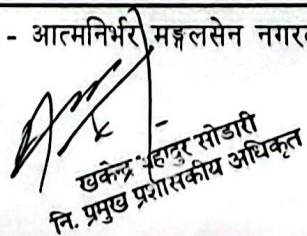 - आत्मनिर्भर मङ्गलसेन
खकेन्द्र बहादुर सोडारी
नि. प्रमुख प्रशासकीय अधिकृत